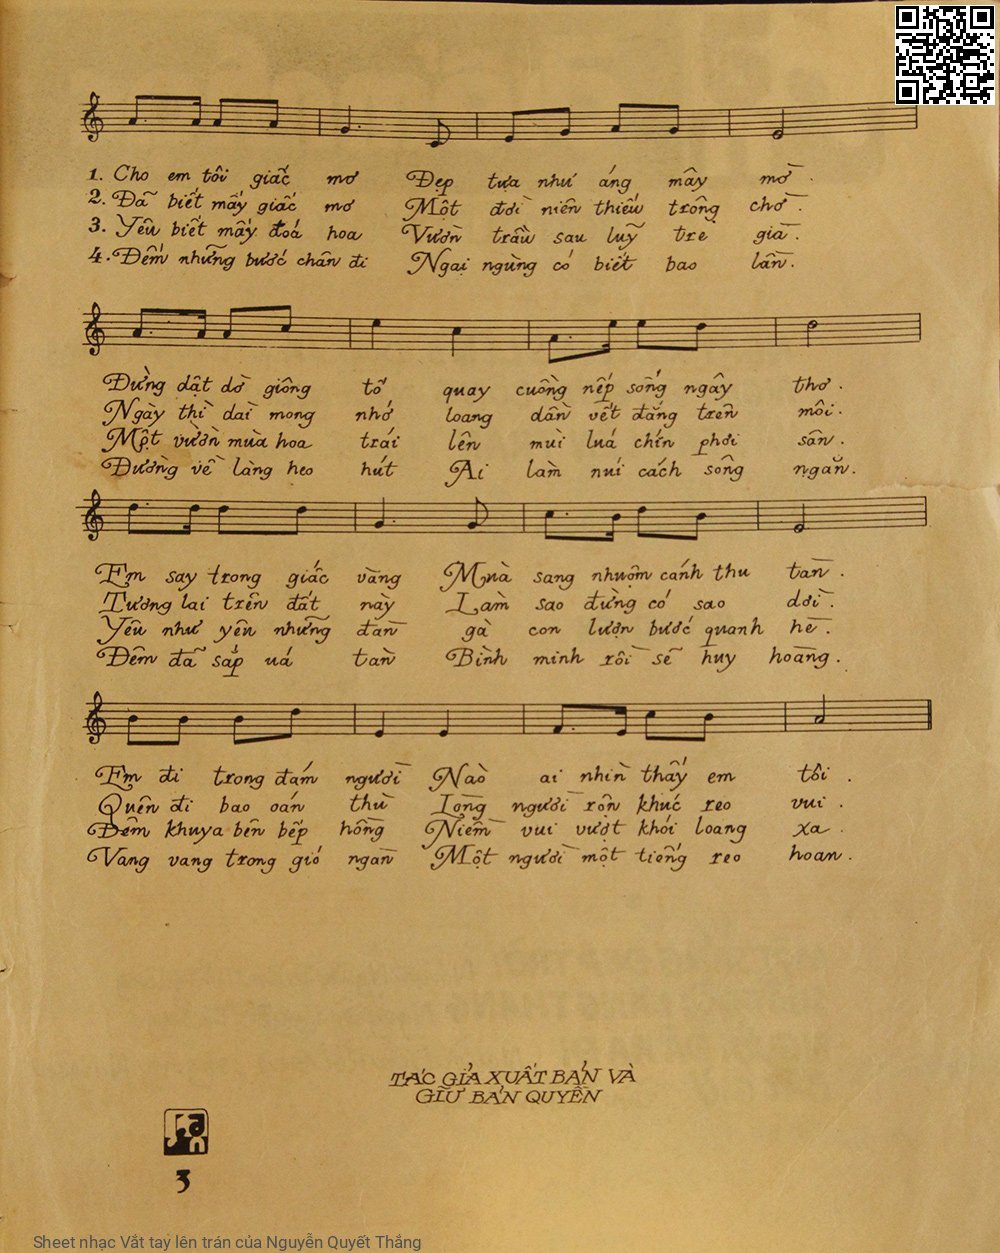 1. Cho em tôi giấc mơ Đẹp tựa như áng mây mờ.
2. Đã biết mấy giấc mơ Một đời niên thiếu trông chờ.
3. Yêu biết mấy đoá hoa Vườn trầu sau luỹ tre già.
4. Đếm những bước chân đi Ngại ngùng có biết bao lần.
Đừng dật dờ giông tố quay cuồng nếp sống ngây thơ.
Ngày thì dài mong nhớ loang dần vết đắng trên môi.
Một vườn mùa hoa trái lên mùi luá chín phơi sân.
Đường về làng heo hút Ai làm núi cách sông ngăn.
Em say trong giấc vàng Muà sang nhuộm cánh thu tàn.
Tương lai trên đất này Làm sao đừng có sao dời.
Yêu như yêu những đàn gà con lượn bước quanh hè.
Đêm đã sắp uá tàn Bình minh rồi sẽ huy hoàng.
Em đi trong đám người Nào ai nhìn thấy em tôi.
Quên đi bao oán thù Lòng người rộn khúc reo vui.
Đêm khuya bên bếp hồng Niềm vui vượt khói loang xa.
Vang vang trong gió ngàn Một người một tiếng reo hoan.
TÁC GIẢ XUẤT BẢN VÀ
GIỮ BẢN QUYỀN
3
Sheet nhạc Vắt tay lên trán của Nguyễn Quyết Thắng